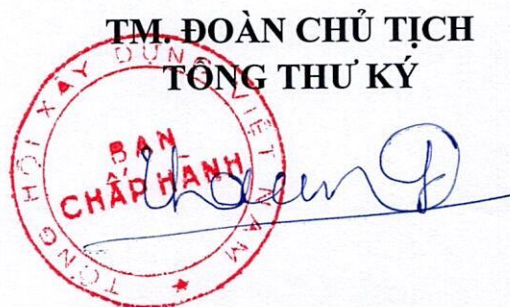 TM. ĐOÀN CHỦ TỊCH
TỔNG THƯ KÝ
TỔNG HỘI XÂY DỰNG VIỆT NAM
BAN
CHẤP HÀNH